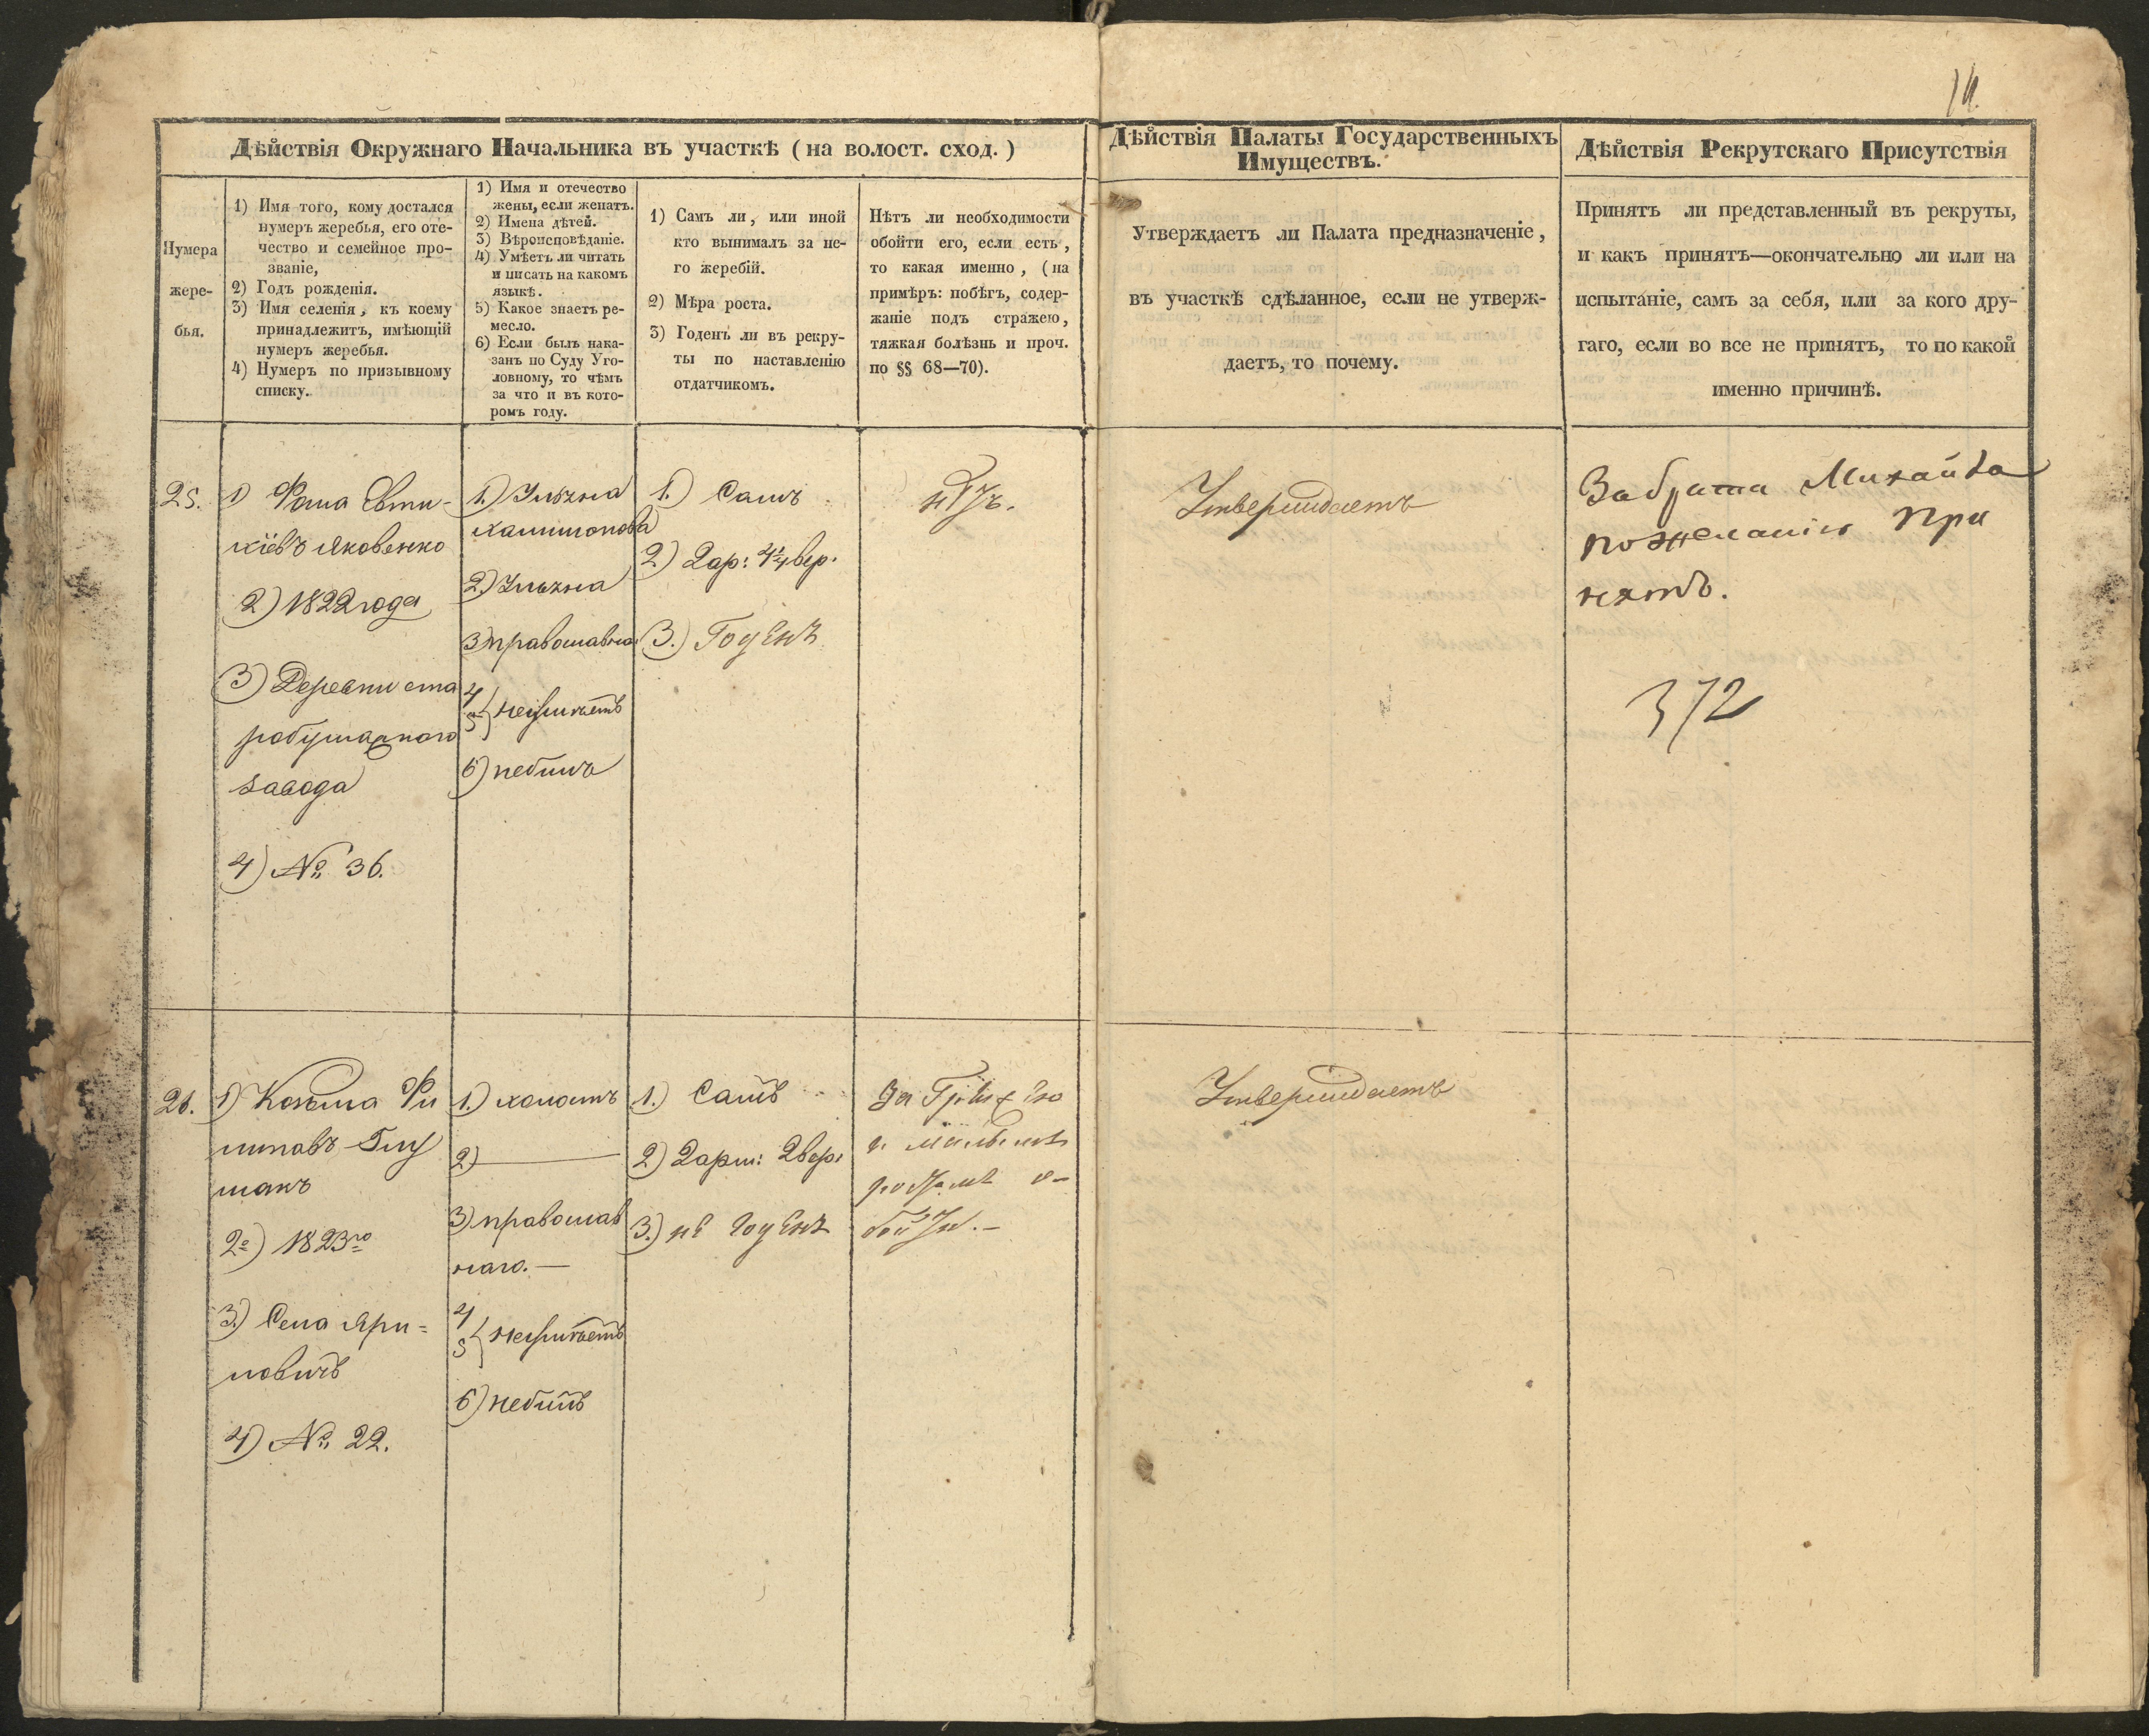 14.
Дѣйствія Окружнаго Начальника въ участкѣ ( на волост. сход. )
Нумера
жере-
бья.
1) Имя того, кому достался
нумеръ жеребья, его оте-
чество и семейное про-
званіе,
2) Годъ рожденія.
3) Имя селенія, къ коему
принадлежитъ, имѣющій
нумеръ жеребья.
4) Нумеръ по призывному
списку.
1) Имя и отечество
жены, если женатъ.
2) Имена дѣтей.
3) Вѣроисповѣданіе.
4) Умѣетъ ли читать
и писать на какомъ
языкѣ.
5) Какое знаетъ ре-
месло.
6) Если былъ нака-
занъ по Суду Уго-
ловному, то чѣмъ
за что и въ кото-
ромъ году.
1) Самъ ли, или иной
кто вынималъ за не-
го жеребій.
2) Мѣра роста.
3) Годенъ ли въ рекру-
ты по наставленію
отдатчикомъ.
Нѣтъ ли необходимости
обойти его, если есть,
то какая именно, (на
примѣръ: побѣгъ, содер-
жаніе подъ стражею,
тяжкая болѣзнь и проч.
по §§ 68—70).
Дѣйствія Палаты Государственныхъ
Имуществъ.
Утверждаетъ ли Палата предназначеніе,
въ участкѣ сдѣланное, если не утверж-
даетъ, то почему.
Дѣйствія Рекрутскаго Присутствія
Принятъ ли представленный въ рекруты,
и какъ принятъ—окончательно ли или на
испытаніе, самъ за себя, или за кого дру-
гаго, если во все не принятъ, то по какой
именно причинѣ.
25.
1) Фома Евти-
хіевъ Яковенко
2) 1822 года
3) Деревни ста
робумажного
завода
4) № 36.
1.) Ульяна
2) Ульяна
3) православна
4
5 } неумѣетъ
6) небылъ
1.) Самъ
2) 2 ар: 4¼ вер.
3.) Годенъ
нѣтъ.
Утверждаетъ
За брата Михайла
по желанію при
нятъ.
372
26.
1) Козьма Фи
липовъ
2) 1823го
3.) Села Яри=
ловичъ
4) № 22.
1.) холостъ
2) ———
3) православ
наго.—
4
5 } неумѣетъ
6) небылъ
1.) Самъ
2) 2 арш: 2 вер:
3.) не годенъ
и малымъ
ростомъ о-
Утверждаетъ